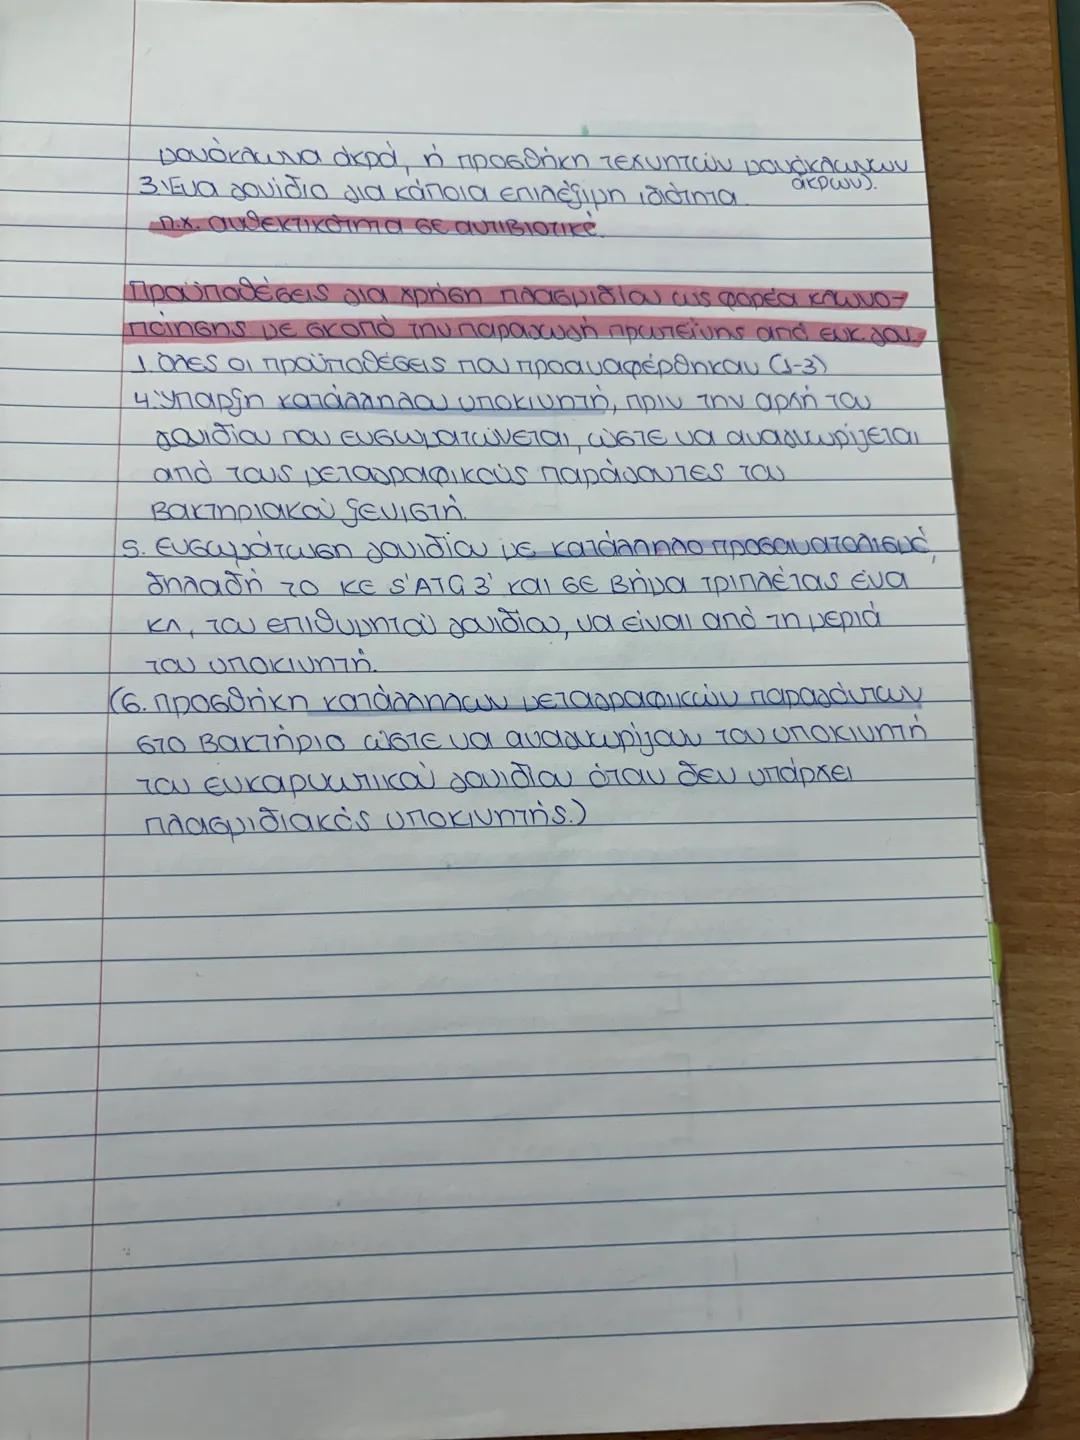 μονόκλωνα άκρα, ή προσθήκη τεχνητών μονόκλωνων
άκρων).
3. Ένα γονίδιο για κάποια επιλέξιμη ιδιότητα
π.χ. ανθεκτικότητα σε αντιβιοτικό.
Προϋποθέσεις για χρήση πλασμιδίου ως φορέα κλωνο-
ποίησης με σκοπό την παραγωγή πρωτεΐνης από ευκ. γον.
1. Όλες οι προϋποθέσεις που προαναφέρθηκαν (1-3)
4. Ύπαρξη κατάλληλου υποκινητή, πριν την αρχή του
γονιδίου που ενσωματώνεται, ώστε να αναγνωρίζεται
από τους μεταγραφικούς παράγοντες του
βακτηριακού ξενιστή.
5. Ενσωμάτωση γονιδίου με κατάλληλο προσανατολισμό,
δηλαδή το ΚΕ 5'ATG3' και σε βήμα τριπλέτας ένα
κλ, του επιθυμητού γονιδίου, να είναι από τη μεριά
του υποκινητή.
(6. Προσθήκη κατάλληλων μεταγραφικών παραγόντων
στο βακτήριο ώστε να αναγνωρίζουν τον υποκινητή
του ευκαρυωτικού γονιδίου όταν δεν υπάρχει
πλασμιδιακός υποκινητής.)